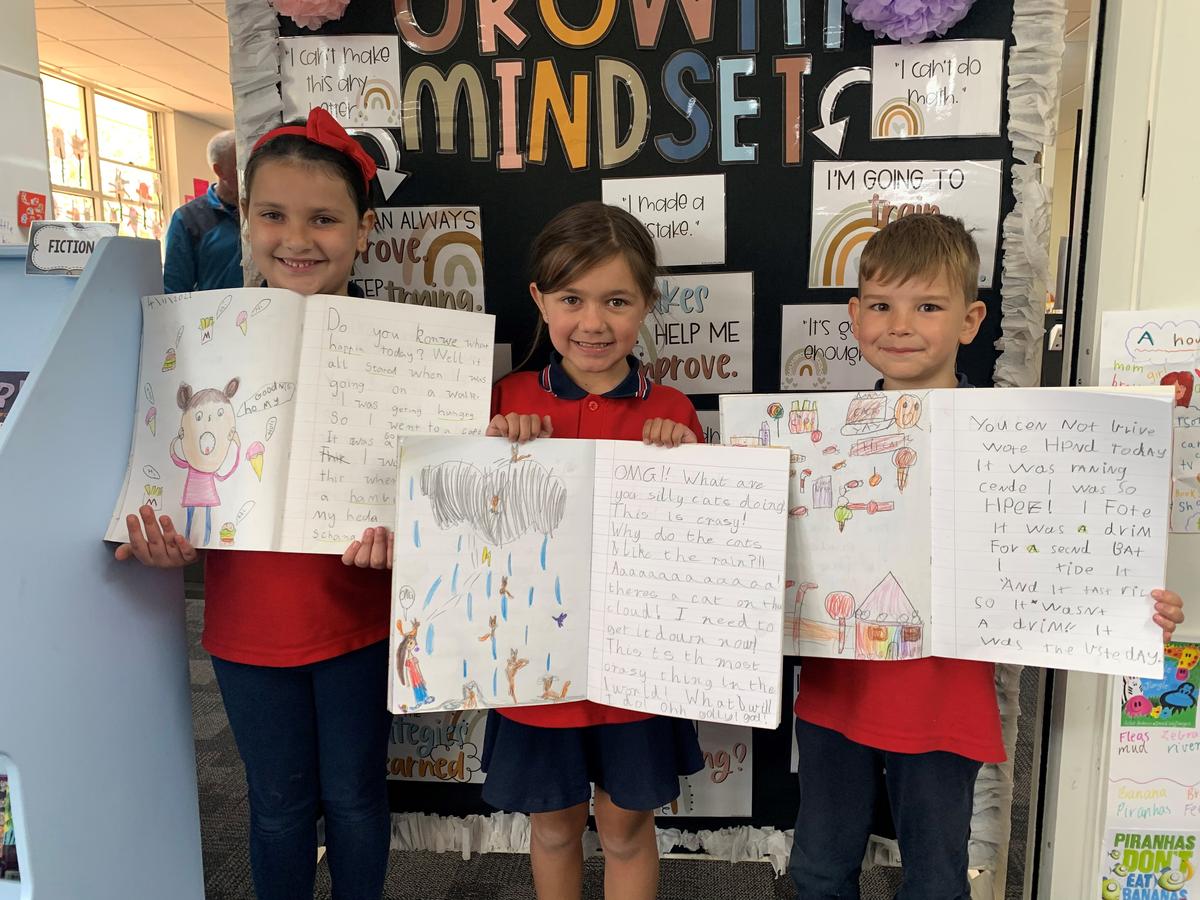 GROWTH
MINDSET
"I can't make
this any
better
"I can't do
math."
"I made a
mistake."
I'M GOING TO
train
AN ALWAYS
prove.
EEP training.
HELP ME
improve.
"It's go
enough
FICTION
4/11/2021
Do you konwe what
happin today? Well it
all stared when I was
going on a walk.
I was geting hungry
So I went to a cafe
It was so
I wa
this when
a hamb
my heda
schang
OMG
OMG!! What are
you silly cats doing
This is crasy!
Why do the cats
like the rain?!!
Aaaaaaaaaaaaa!
theres a cat on the
cloud! I need to
get it down now!
This is th most
crasy thing in the
world! What will
I do! Ohh golly! god!
You cen Not brive
wote HPND Today
It was raning
cende I was so
HPEE! I Fote
It was a drim
For a secnd BAt
I tide It
And It tast ric
SO It wasnt
A drim!! It
was the bsteday.
tegies
earned
ng?
A hou
mom
Fleas Zebra
mud river
Banana
Piranhas
PIRANHAS
DON'T
EAT
BANANAS